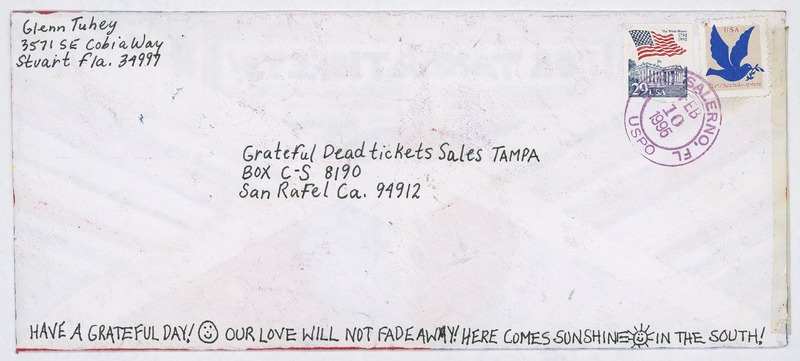 Glenn Tuhey
3571 SE Cobia Way
Stuart Fla. 34997
29 USA
USA
SALERNO, FL
FEB
10
1995
USPO
Grateful Dead tickets Sales TAMPA
BOX C-S 8190
San Rafel Ca. 94912
HAVE A GRATEFUL DAY! OUR LOVE WILL NOT FADE AWAY! HERE COMES SUNSHINE IN THE SOUTH!